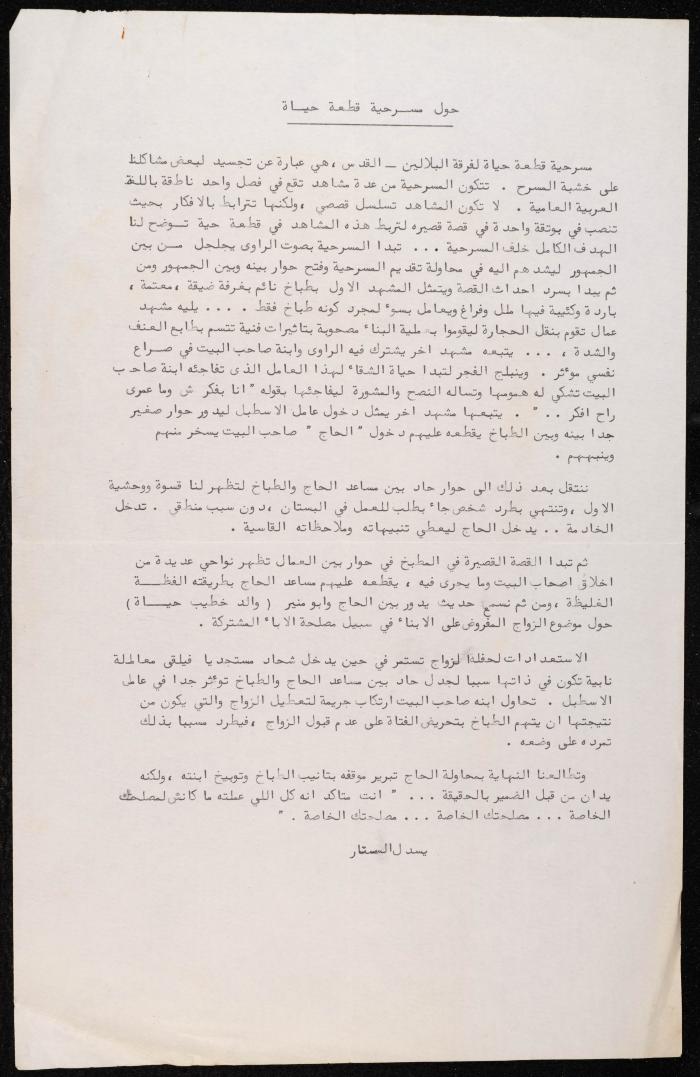 حول مسرحية قطعة حياة
مسرحية قطعة حياة لفرقة البلالين ــ القدس ،هي عبارة عن تجسيد لبعض مشاكلنا
على خشبة المسرح . تتكون المسرحية من عدة مشاهد تقع في فصل واحد ناطقة باللغة
العربية العامية . لا تكون المشاهد تسلسل قصصي ،ولكنها تترابط بالافكار بحيث
تنصب في بوتقة واحدة في قصة قصيره لتربط هذه المشاهد في قطعة حية توضح لنا
الهدف الكامل خلف المسرحية ... تبدا المسرحية بصوت الراوى يجلجل من بين
الجمهور ليشدهم اليه في محاولة تقديم المسرحية وفتح حوار بينه وبين الجمهور ومن
ثم يبدا بسرد احداث القصة ويتمثل المشهد الاول بطباخ نائم بغرفة ضيقة ،معتمة ،
باردة وكئيبة فيها ملل وفراغ ويعامل بسوء لمجرد كونه طباخ فقط . ... يليه مشهد
عمال تقوم بنقل الحجارة ليقوموا بعملية البناء مصحوبة بتاثيرات فنية تتسم بطابع العنف
والشدة ، ... يتبعه مشهد اخر يشترك فيه الراوى وابنة صاحب البيت في صراع
نفسي موءثر . وينبلج الفجر لتبدا حياة الشقاء لهذا العامل الذى تفاجئه ابنة صاحب
البيت تشكي له همومها وتساله النصح والمشورة ليفاجئها بقوله " انا بفكر ش وما عمرى
راح افكر .. " . يتبعها مشهد اخر يمثل دخول عامل الاسطبل ليدور حوار صغير
جدا بينه وبين الطباخ يقطعه عليهم دخول " الحاج " صاحب البيت يسخر منهم
وينبههم .
ننتقل بعد ذلك الى حوار حاد بين مساعد الحاج والطباخ لتظهر لنا قسوة ووحشية
الاول ،وتنتهي بطرد شخص جاء يطلب للعمل في البستان ،دون سبب منطقي . تدخل
الخادمة .. يدخل الحاج ليعطي تنبيهاته وملاحظاته القاسية .
ثم تبدا القصة القصيرة في المطبخ في حوار بين العمال تظهر نواحي عديدة من
اخلاق اصحاب البيت وما يجرى فيه ، يقطعه عليهم مساعد الحاج بطريقته الفظة
الغليظة ،ومن ثم نسمع حديث يدور بين الحاج وابو منير ( والد خطيب حياة )
حول موضوع الزواج المفروض على الابناء في سبيل مصلحة الاباء المشتركة .
الاستعدادات لحفلة الزواج تستمر في حين يدخل شحاد مستجديا فيلقى معاملة
نابية تكون في ذاتها سببا لجدل حاد بين مساعد الحاج والطباخ توءثر جدا في عامل
الاسطبل . تحاول ابنه صاحب البيت ارتكاب جريمة لتعطيل الزواج والتي يكون من
نتيجتها ان يتهم الطباخ بتحريض الفتاة على عدم قبول الزواج ،فيطرد مسببا بذلك
تمرده على وضعه .
وتطالعنا النهاية بمحاولة الحاج تبرير موقفه بتانيب الطباخ وتوبيخ ابنته ،ولكنه
يدان من قبل الضمير بالحقيقة ... " انت متاكد انه كل اللي عملته ما كانش لمصلحتك
الخاصة ... مصلحتك الخاصة ... مصلحتك الخاصة . "
يسدل الستار